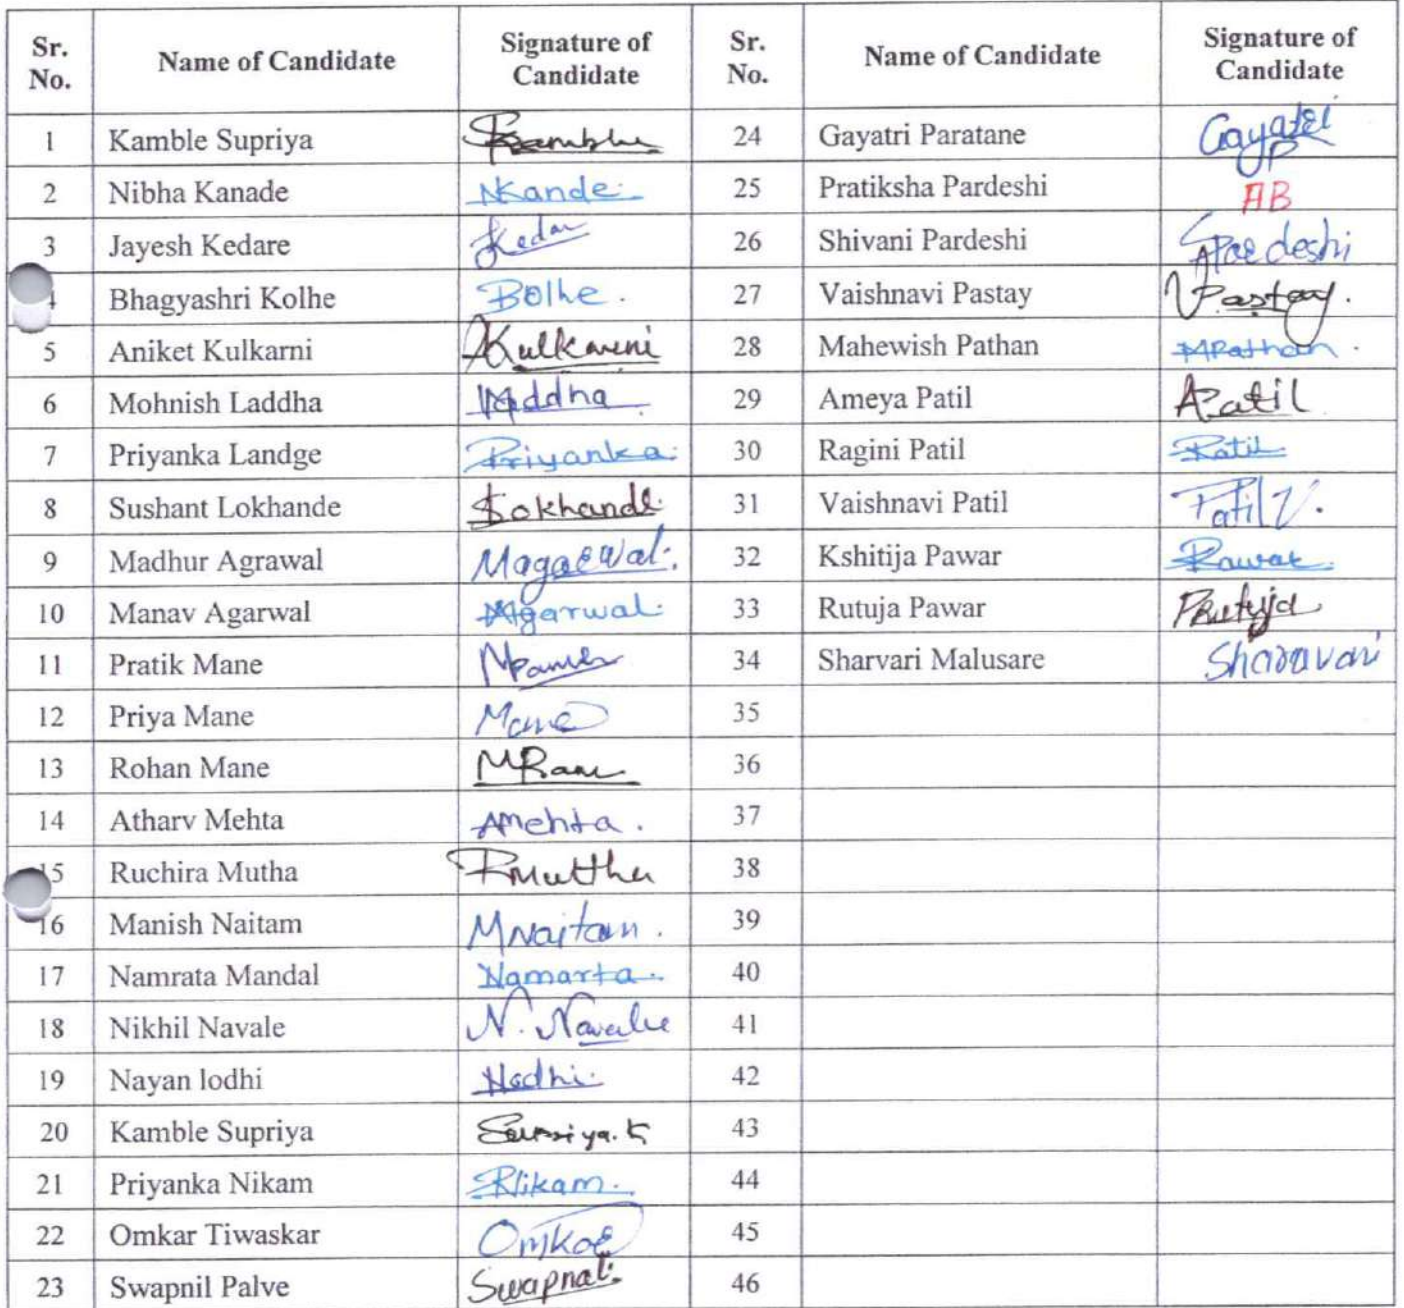 Sr. No. Name of Candidate Signature of Candidate Sr. No. Name of Candidate Signature of Candidate
1 Kamble Supriya Kamble 24 Gayatri Paratane Gayatri P
2 Nibha Kanade NKande. 25 Pratiksha Pardeshi AB
3 Jayesh Kedare Kedar 26 Shivani Pardeshi SPardeshi
Bhagyashri Kolhe Bolhe. 27 Vaishnavi Pastay VPastay.
5 Aniket Kulkarni AKulkarni 28 Mahewish Pathan MPathan.
6 Mohnish Laddha Maddha 29 Ameya Patil APatil
7 Priyanka Landge Priyanka. 30 Ragini Patil Patil
8 Sushant Lokhande Sokhande. 31 Vaishnavi Patil Patil V.
9 Madhur Agrawal Magarwal. 32 Kshitija Pawar Pawar.
10 Manav Agarwal MAgarwal. 33 Rutuja Pawar PRutuja
11 Pratik Mane 34 Sharvari Malusare Sharavari
12 Priya Mane Mane 35
13 Rohan Mane 36
14 Atharv Mehta AMehta. 37
15 Ruchira Mutha RMuttha 38
16 Manish Naitam MNaitam. 39
17 Namrata Mandal Namarta. 40
18 Nikhil Navale N. Navale 41
19 Nayan lodhi 42
20 Kamble Supriya Supriya.K 43
21 Priyanka Nikam PNikam. 44
22 Omkar Tiwaskar Omkar 45
23 Swapnil Palve Swapnal. 46